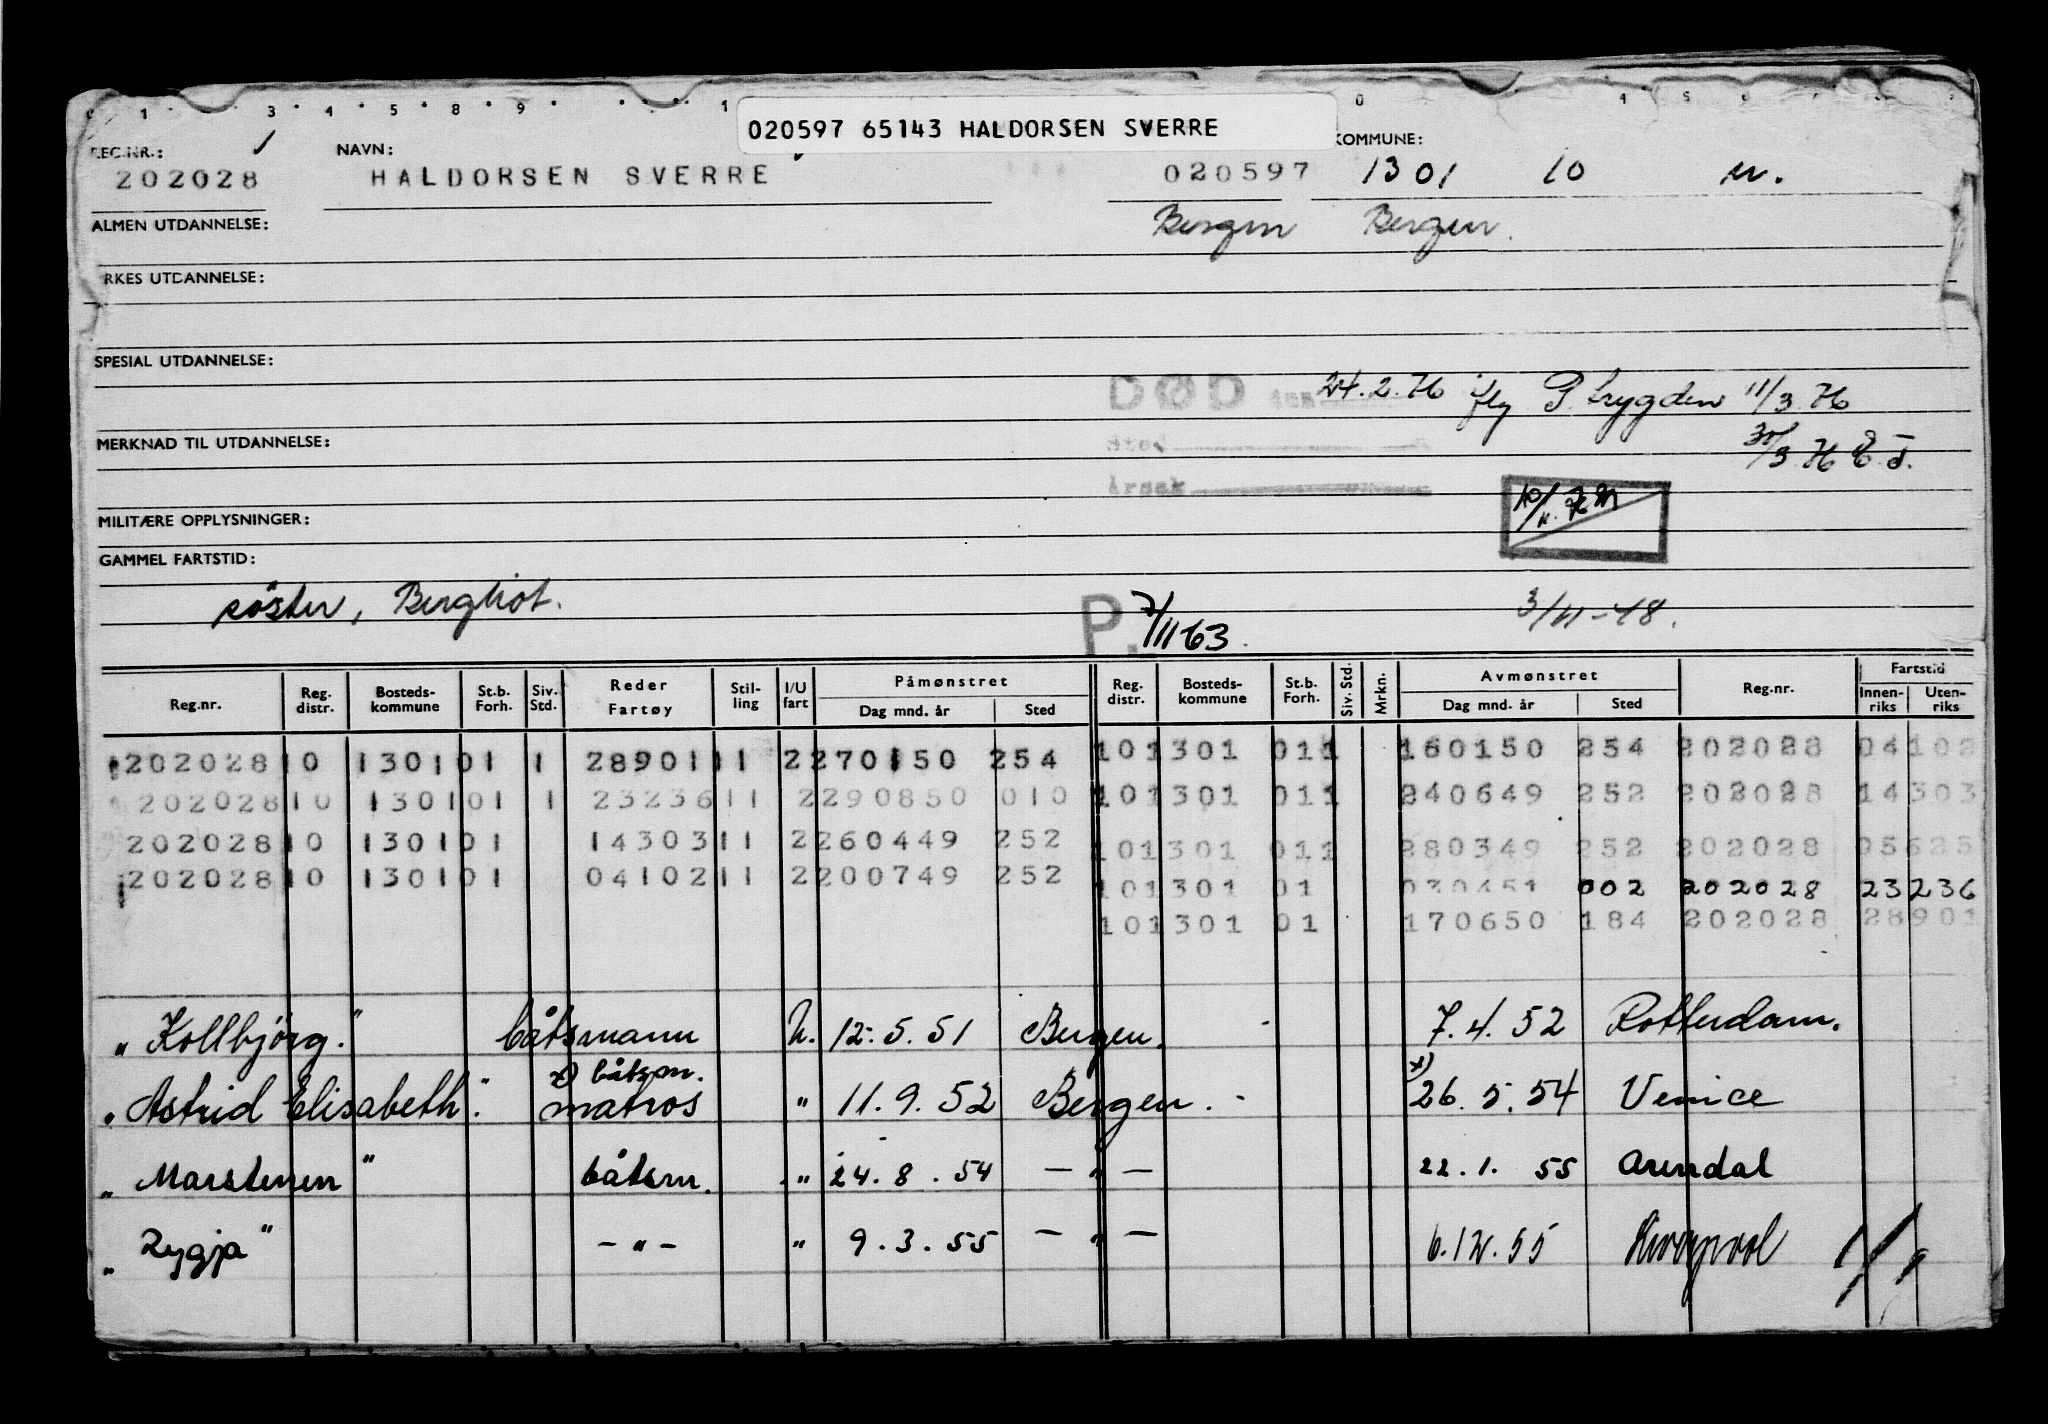 020597 65143 HALDORSEN SVERRE
REG.NR.: NAVN: KOMMUNE:
202028 HALDORSEN SVERRE 020597 1301 10 m.
ALMEN UTDANNELSE: Bergen Bergen.
YRKES UTDANNELSE:
SPESIAL UTDANNELSE:
DØD den 24.2.76 iflg P.trygden 11/3 76
MERKNAD TIL UTDANNELSE: Sted 30/3 76 E.J.
Årsak
MILITÆRE OPPLYSNINGER:
GAMMEL FARTSTID:
søster, Bergliot. P. 7/11 63. 3/11-48.
Reg.nr. Reg. distr. Bosteds- kommune St.b. Forh. Siv. Std. Reder Fartøy Stil- ling I/U fart Påmønstret Dag mnd. år Sted Reg. distr. Bosteds- kommune St.b. Forh. Siv. Std. Mrkn. Avmønstret Dag mnd. år Sted Reg.nr. Fartstid Innen- riks Uten- riks
202028 10 1301 01 1 28901 11 2 270150 254 10 1301 01 1 160150 254 202028 04102
202028 10 1301 01 1 23236 11 2 290850 010 10 1301 01 1 240649 252 202028 14303
202028 10 1301 01 14303 11 2 260449 252 10 1301 01 1 280349 252 202028 05625
202028 10 1301 01 04102 11 2 200749 252 10 1301 01 030451 002 202028 23236
10 1301 01 170650 184 202028 28901
"Kollbjörg." båtsmann U. 12.5.51 Bergen. - 7.4.52 Rotterdam.
x) båtsm.
"Astrid Elisabeth". matros " 11.9.52 Bergen. - x) 26.5.54 Venice
"Marstenen" båtsm. " 24.8.54 — " — 22.1.55 Arendal
"Rygja" - " - " 9.3.55 — " — 6.12.55 Liverpool